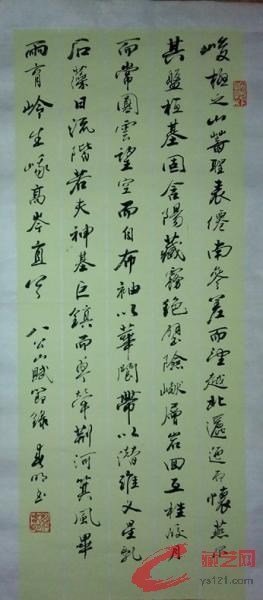 峻極之山蓄聖表僊南參差而望越北邐迤而懷燕爾
其盤桓基固含陽藏霧絕壁險巇層岩回互桂皎月
而常團雲望空而自布袖以華閬帶以潛淮文星亂
石藻日流階若夫神基巨鎮而卓犖荆河箕風畢
雨育岭生峨高岑直兮 八公山賦節錄 春明書
藏艺网
ys121.com